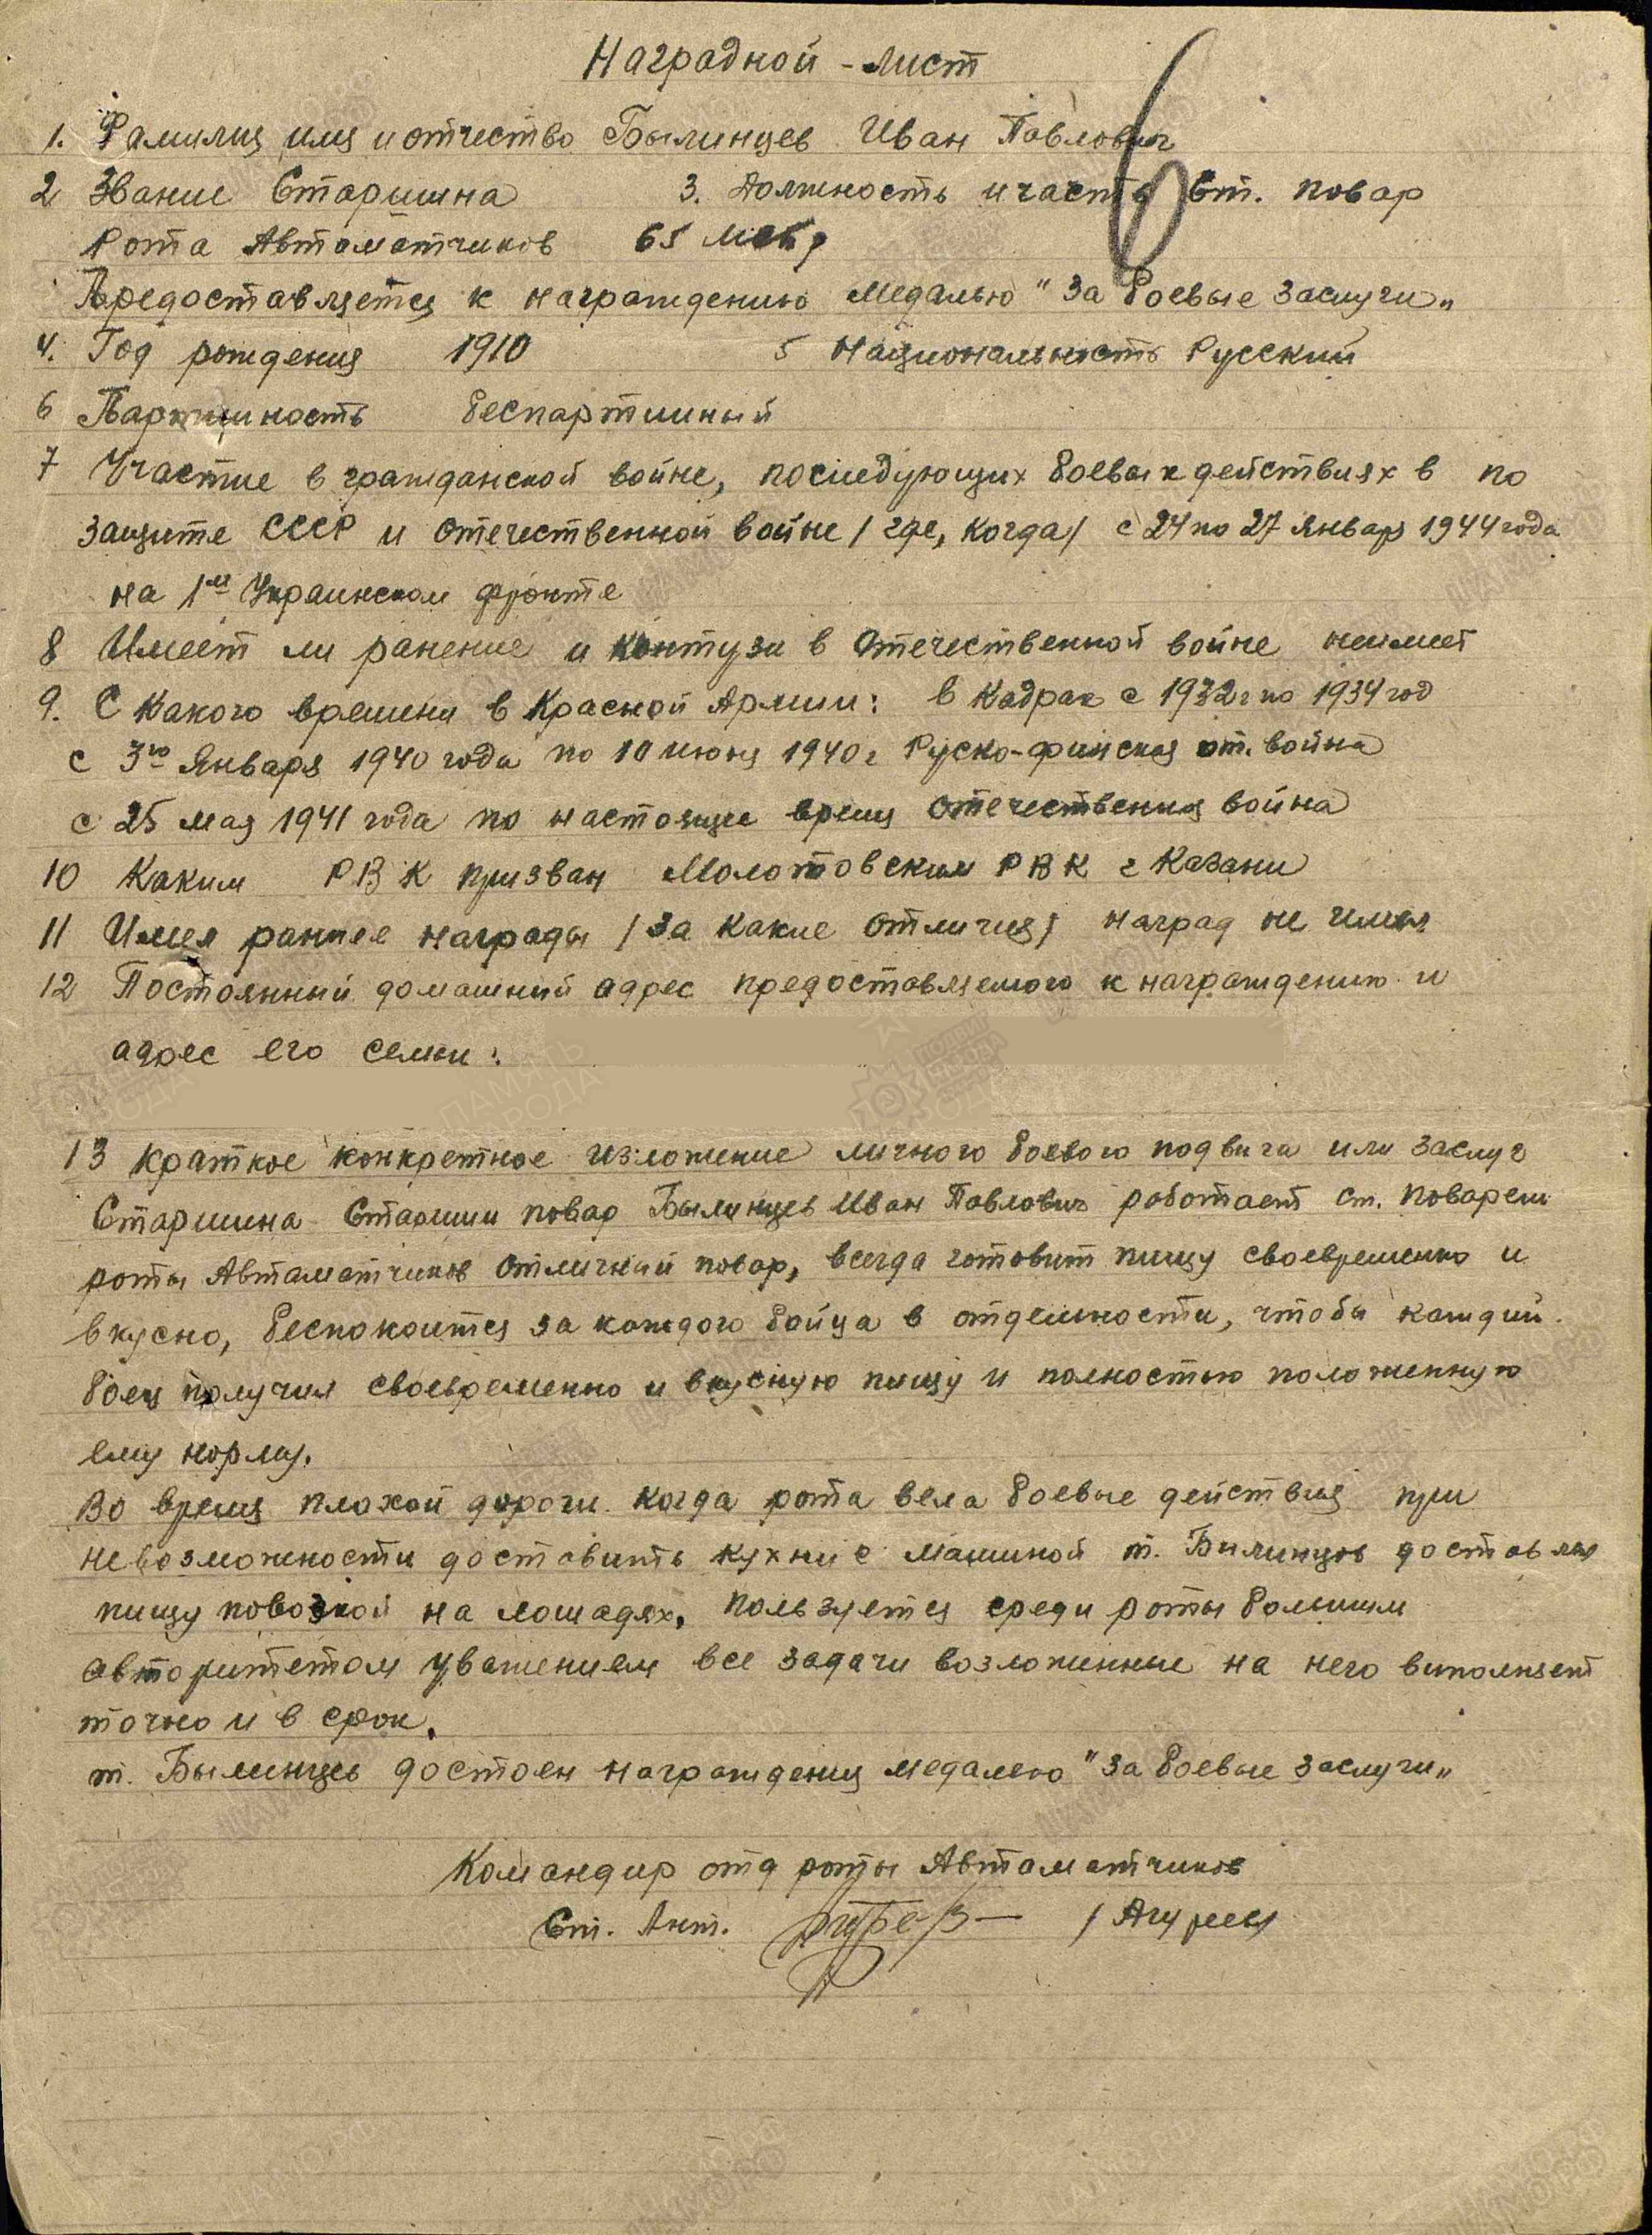 Наградной - лист
1. Фамилия имя и отчество Былинцев Иван Павлович
2 Звание Старшина 3. Должность и часть Ст. повар
Рота Автоматчиков 65 мсбр
Предоставляется к награждению медалью "За боевые заслуги"
4. Год рождения 1910 5 Национальность Русский
6 Партийность беспартийный
7 Участие в гражданской войне, последующих боевых действиях в по
защите СССР и отечественной войне / где, когда / с 24 по 27 январь 1944 года
на 1м Украинском фронте
8 Имеет ли ранение и контузи в Отечественной войне неимеет
9. С какого времени в Красной Армии: в Кадрах с 1932 г по 1934 год
с 3го Января 1940 года по 10 июня 1940 г Руско-финская от. война
с 25 мая 1941 года по настояще время отечественная война
10 Каким РВК призван Молотовским РВК г Казани
11 Имел ранее награды / за какие отличия / наград не имел
12 Постоянный домашний адрес предоставляемого к награждению и
адрес его семьи:
13 Краткое конкретное изложение личного боевого подвига или заслуг
Старшина Старшии повар Былинцев Иван Павлович работает ст. поваром
роты Автоматчиков отличный повар, всегда готовит пищу своевременно и
вкусно, беспокоится за каждого бойца в отдельности, чтобы каждый
боец получил своевременно и вкусную пищу и полностью положенную
ему норму.
Во время плохой дороги когда рота вела боевые действия при
невозможности доставить кухни с машиной т. Былинцев доставлял
пищу повозкой на лошадях, пользуется среди роты большим
авторитетом уважением все задачи возложенные на него выполняет
точно и в срок.
т. Былинцев достоен награждения медалью "За боевые заслуги"
Командир отд роты Автоматчиков
Ст. Лит.